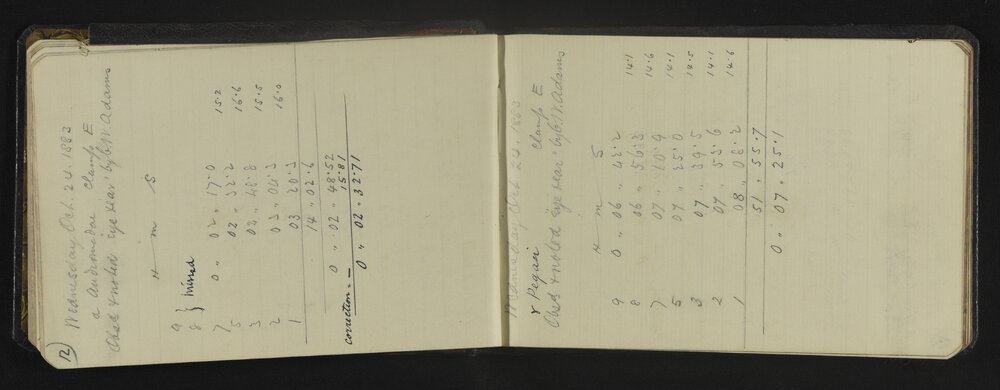 12
Wednesday Oct. 24. 1883
α Andromedae clamp E
Obsd & noted 'eye & ear' by C. W. Adams
H m S
9
8 } missed
7 0 " 02 " 17.0 15.2
5 02 " 32.2 16.6
3 02 " 48.8 15.5
2 03 " 04.3 16.0
1 03 20.3
14 " 02.6
0 " 02 " 48.52
correction = – 15.81
0 " 02 " 32.71
Wednesday Oct 24. 1883
γ Pegasi clamp E
Obsd & noted 'eye & ear' by C. W. Adams
H m S
9 0 " 06 " 42.2 14.1
8 06 " 56.3 14.6
7 07 " 10.9 14.1
5 07 " 25.0 14.5
3 07 " 39.5 14.1
2 07 " 53.6 14.6
1 08 " 08.2
51 " 55.7
0 " 07 " 25.1